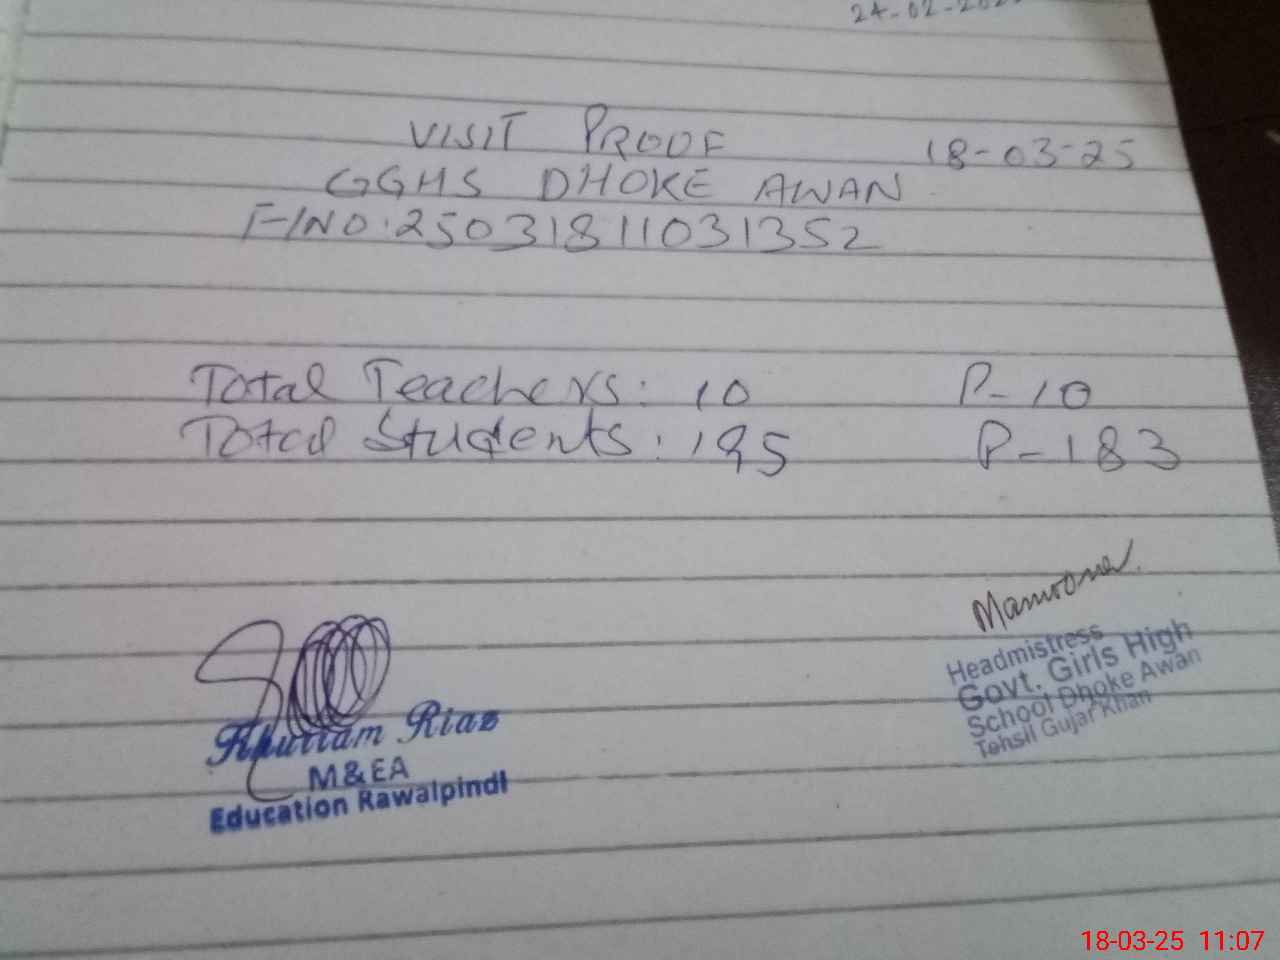 24-02-202
VISIT PROOF 18-03-25
GGHS DHOKE AWAN
F/NO:25031811031352
Total Teachers: 10 P-10
Total Students: 195 P-183
Mamoona
Headmistress
Govt. Girls High
School Dhoke Awan
Tehsil Gujar Khan
Khurram Riaz
M&EA
Education Rawalpindi
18-03-25 11:07